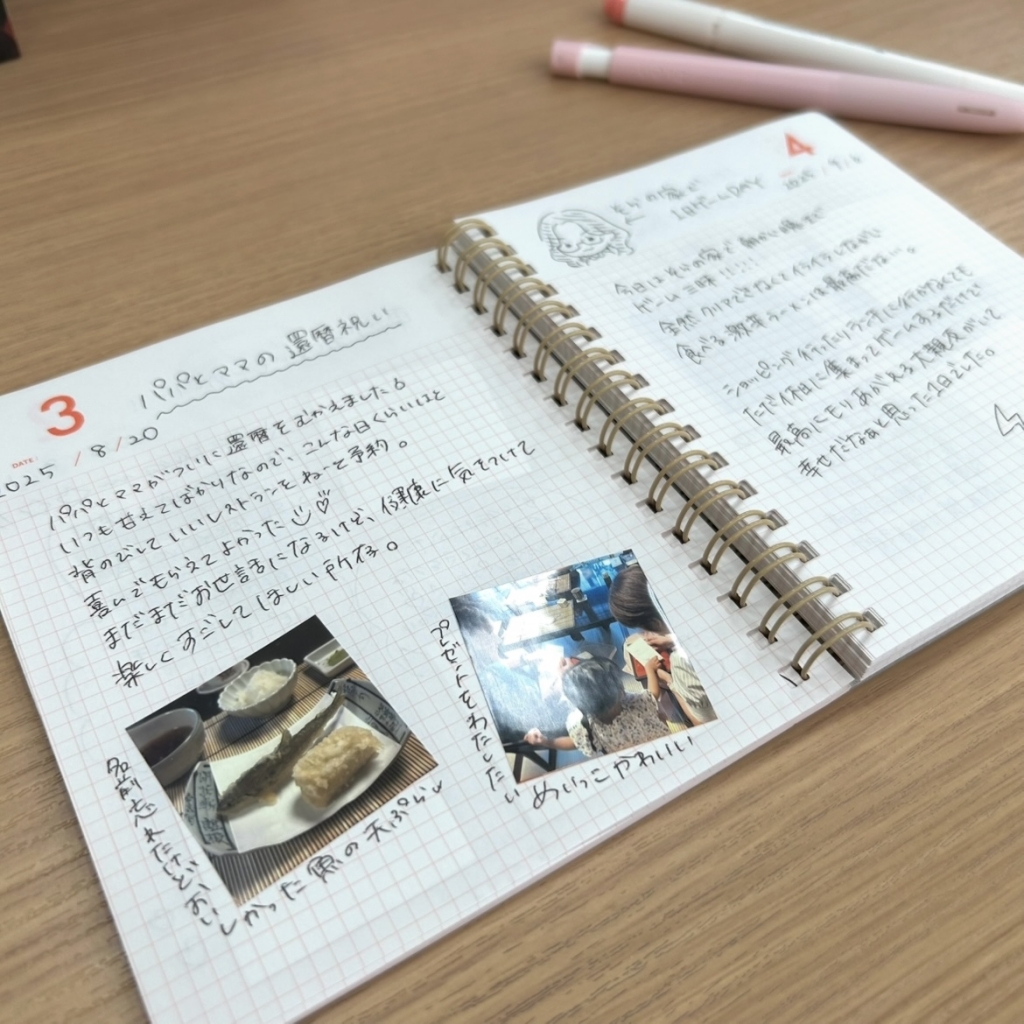 3
パパとママの還暦祝い
DATE:
2025 / 8 / 20
パパとママがついに還暦をむかえました！
いつも甘えてばかりなので、こんな日くらいはと
背のびしていいレストランをねーと予約。
喜んでもらえてよかった
まだまだお世話になるけど、健康に気をつけて
楽しくすごしてほしい所存。
名前忘れたけど、おいしかった魚の天ぷら
プレゼントをわたしたい
めいっこかわいい
4
の家で
1日ゲームDAY
今日は の家で
ゲーム三昧!!!!
全然クリアできなくてイライラしながら
食べる ラーメンは最高だな。
ショッピング行ったりランチに行かなくても
ただ休日に集まってゲームするだけで
最高にもりあがれる大親友がいて
幸せだなぁと思った1日でした。